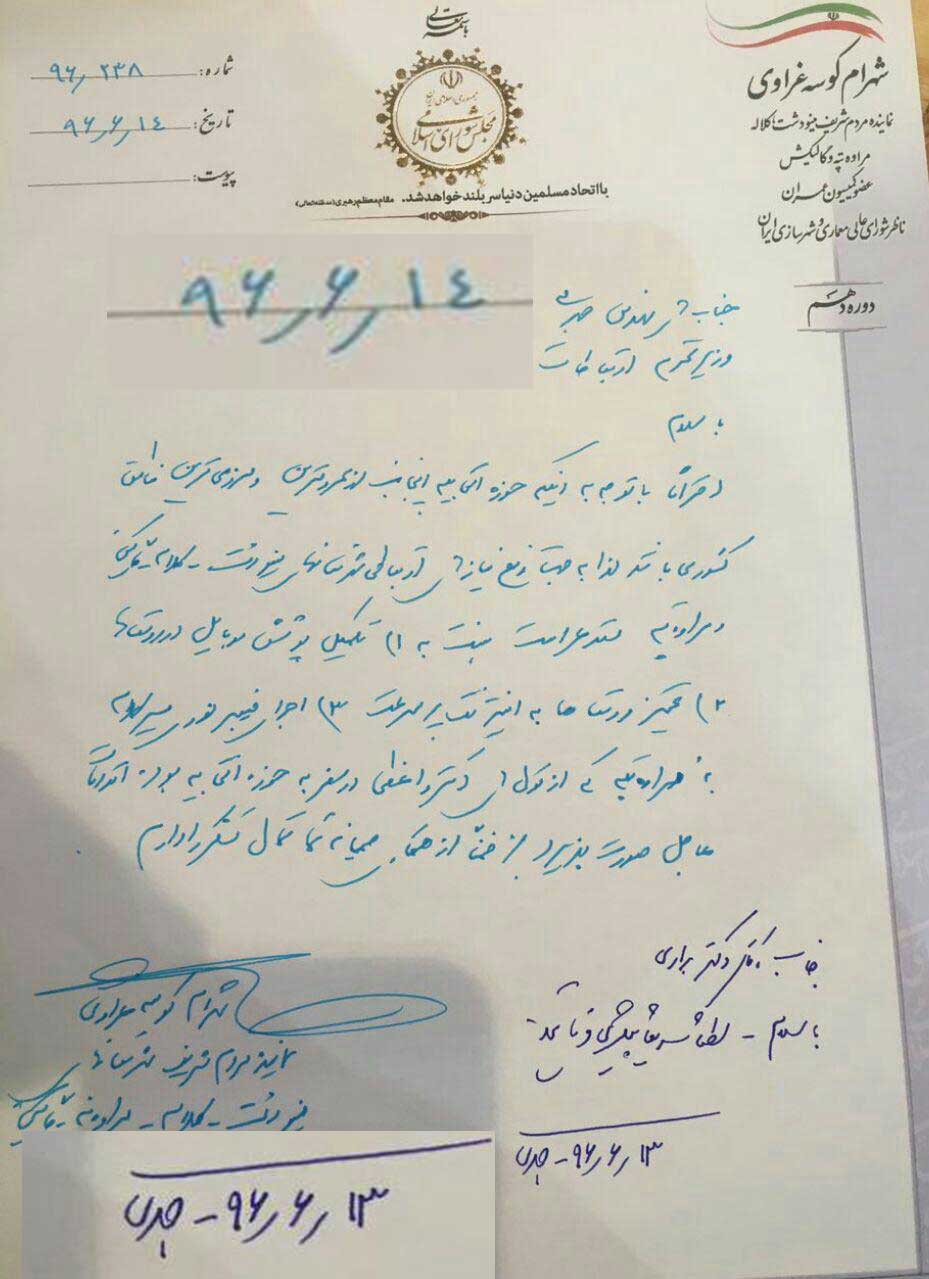 باسمه تعالی
جمهوری اسلامی ایران
مجلس شورای اسلامی
با اتحاد مسلمین دنیا سربلند خواهد شد. مقام معظم رهبری (مدظله‌العالی)
شماره: ۹۶٫۲۳۸
تاریخ: ۹۶٫۶٫۱۴
پیوست:
شهرام کوسه غراوی
نماینده مردم شریف مینودشت، کلاله
مراوه تپه و گالیکش
عضو کمیسیون عمران
ناظر شورای عالی معماری و شهرسازی ایران
دوره دهم
۹۶٫۶٫۱۴
جناب مهندس جهرمی
وزیر محترم ارتباطات
با سلام
احتراماً با توجه به اینکه حوزه انتخابیه اینجانب از محرومترین و مرزی ترین مناطق
کشور می باشد لذا به جهت رفع نیازهای ارتباطی شهرستانهای مینودشت - کلاله - گالیکش
و مراوه تپه مستدعی است نسبت به ۱) تکمیل پوشش موبایل در روستاها
۲) تجهیز روستا ها به اینترنت پر سرعت ۳) اجرای فیبر نوری مسیر کلاله
به مراوه تپه که از قول های دکتر واعظی در سفر به حوزه انتخابیه بود، اقدامات
عاجل صورت پذیرد. ضمناً از همکاری صمیمانه شما کمال تشکر را دارم.
شهرام کوسه غراوی
نماینده مردم شریف شهرستانهای
مینودشت - کلاله - مراوه تپه - گالیکش
جناب آقای دکتر براری
با سلام - لطفاً
۹۶٫۶٫۱۳ - جهرمی
۹۶٫۶٫۱۳ - جهرمی